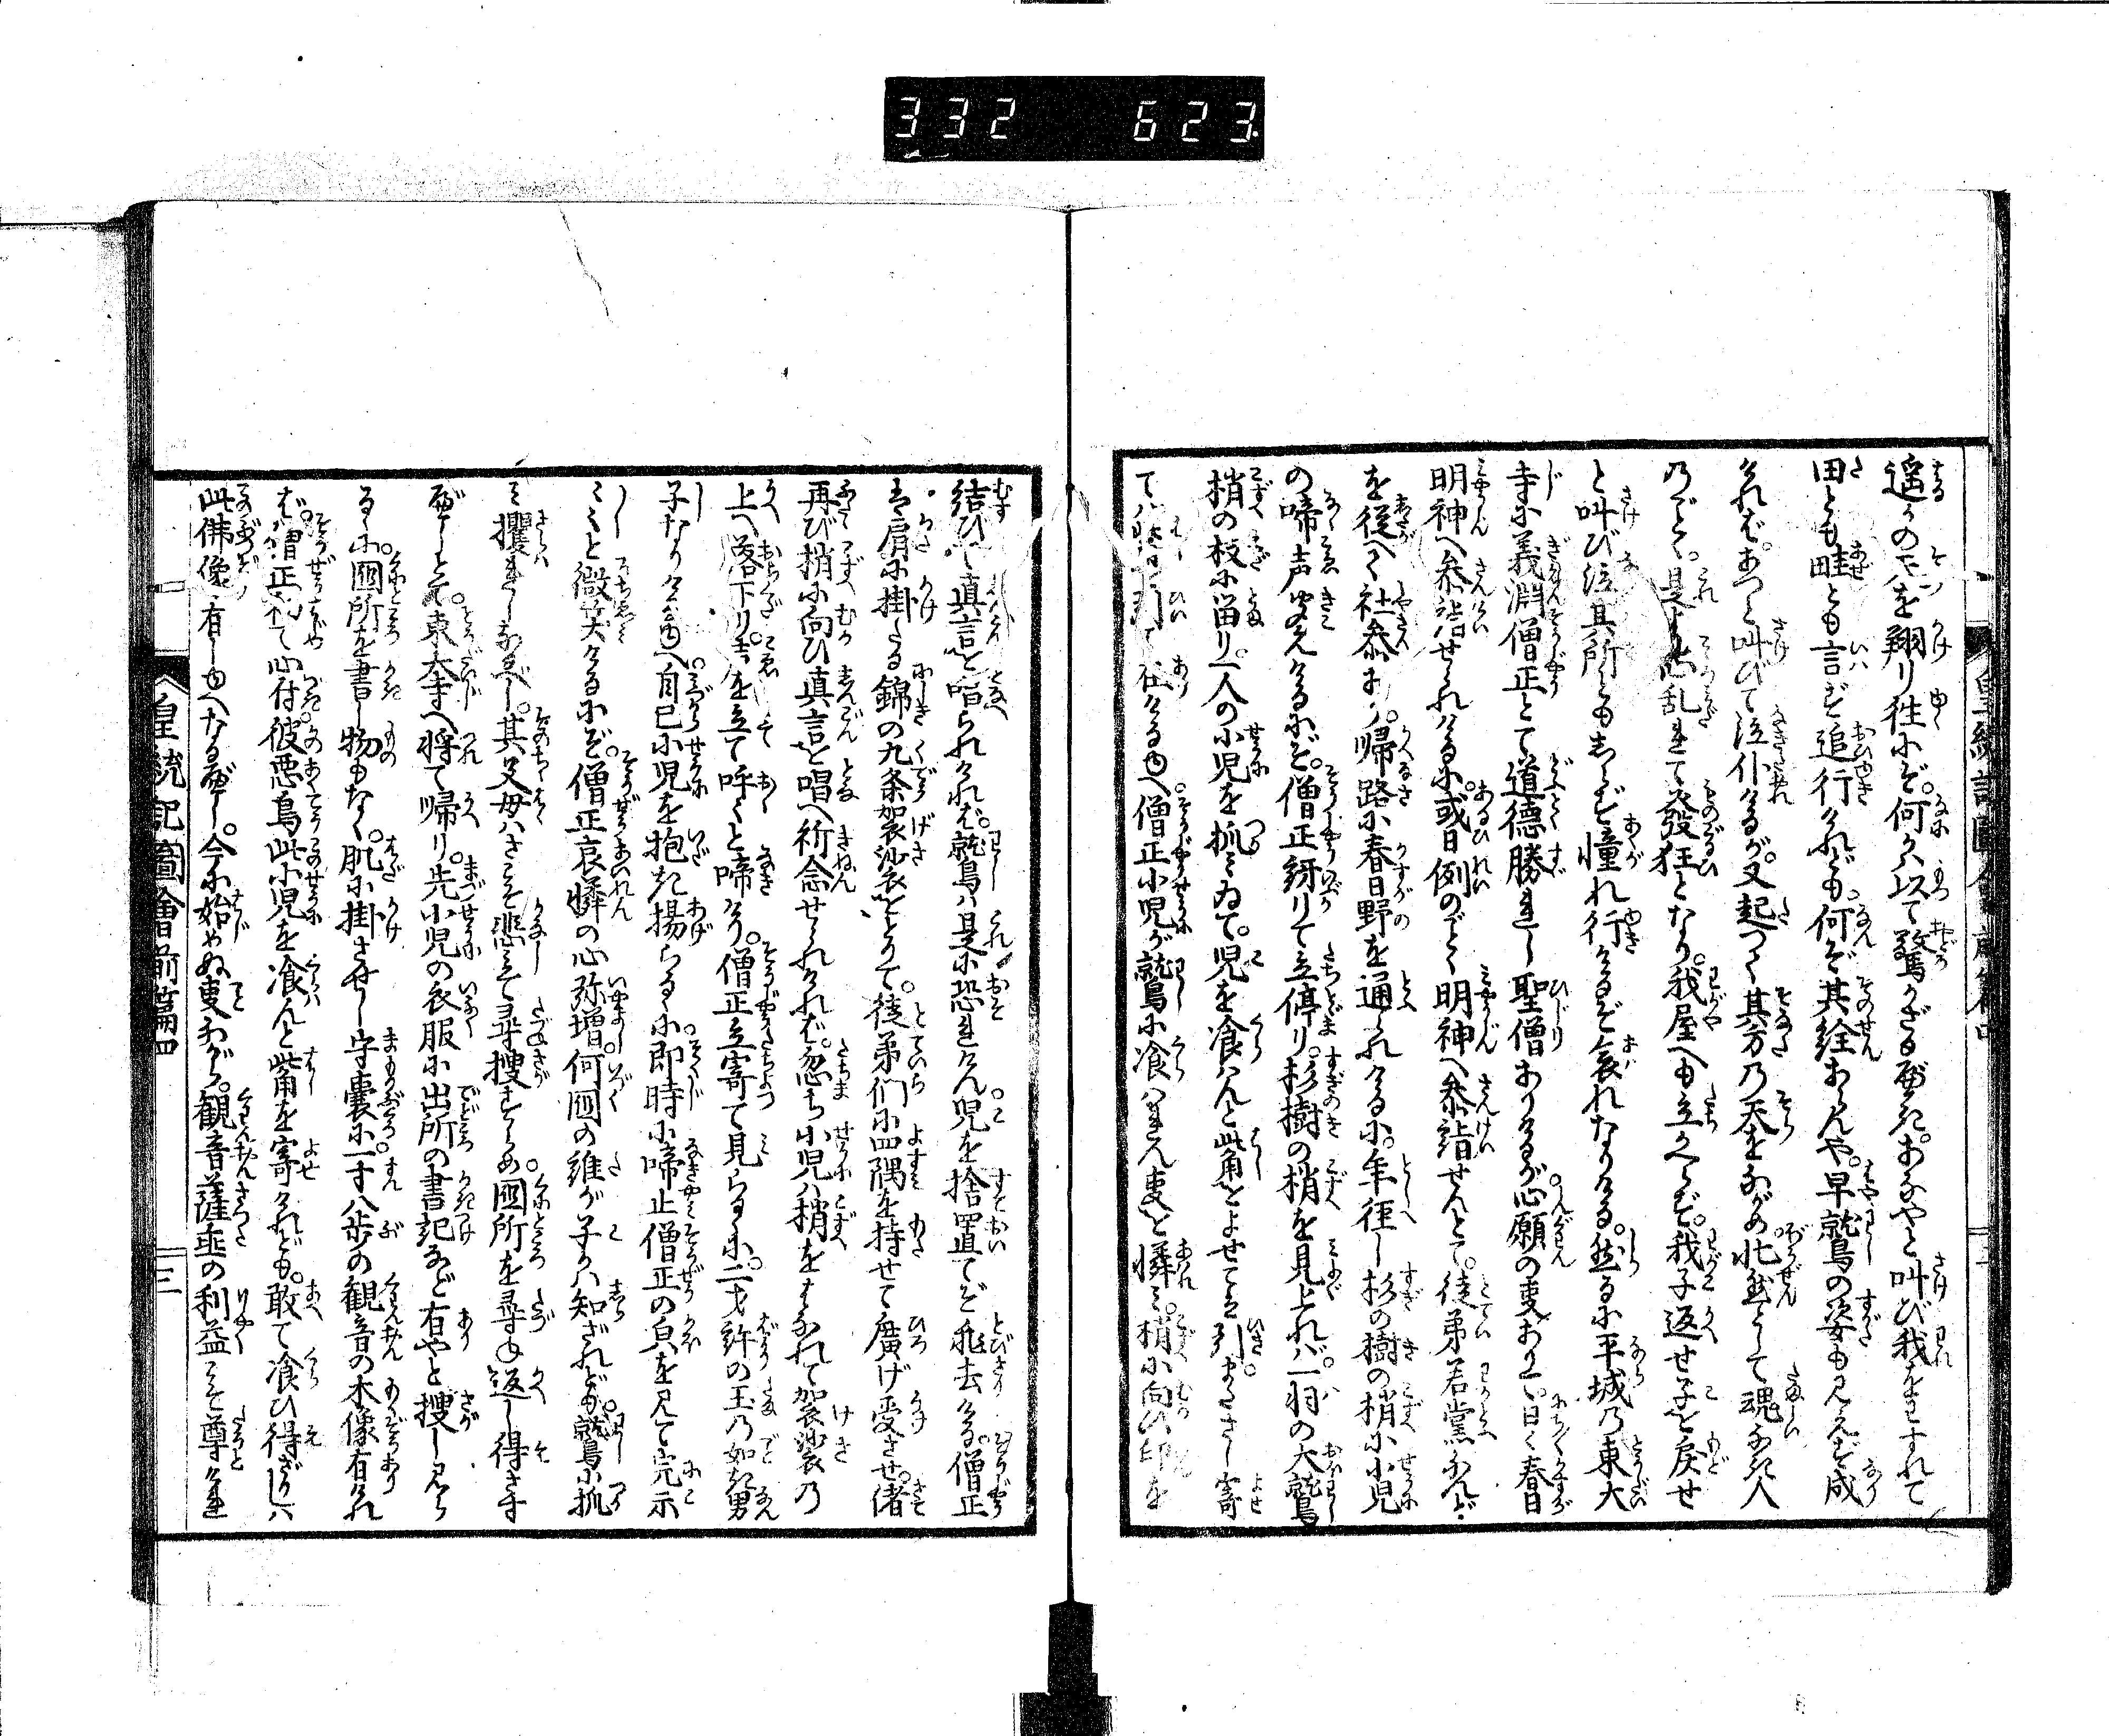 332 623
皇統記圖会前篇四
遥の天を翔り往にぞ。何かは以て驚かざるべき。あなやと叫び我をわすれて
田とも畦とも言ず追行けれども。何ぞ其詮あらんや。早鷲の姿も見えず成
ければ。あつと叫びて泣仆けるが。又起つく其方の天をながめ。忙然として魂なき人
のごとく。是より心乱れて發狂となり。我屋へも立かへらず。我子返せ子を戻せ
と叫び泣其所ともしらず憧れ行けるぞ哀れなりける。然るに平城の東大
寺に義淵僧正とて道徳勝れし聖僧おりけるが。心願の事ありて日〻春日
明神へ參詣せられけるに。或日例のごとく明神へ參詣せんとて。徒弟若黨
を從へて社參あり。帰路に春日野を通られけるに。年経し杉の樹の梢に小児
の啼声聞えけるにぞ。僧正訝りて立停り。杉樹の梢を見上れば。一羽の大鷲
梢の枝に留り。一人の小児を抓みゐて。児を喰はんと觜をよせては引。またさし寄
ては 引て在けるゆへ。僧正小児が鷲に喰はれん事を憐み。梢に向ひ印を
結びて真言を唱られければ。鷲は是に恐れけん児を捨置てぞ飛去ける。僧正
は肩に掛たる錦の九条袈裟をとりて。徒弟们に四隅を持せて廣げ受させ。偖
再び梢に向ひ真言を唱へ祈念せられければ。忽ち小児は梢をはなれて袈裟の
上へ落下り。声を立て呼〻と啼けり。僧正立寄て見らるゝに。二才許の玉の如き男
子なりけるゆへ。自己小児を抱き揚らるゝに。即時に啼止僧正の㒵を見て完示
〻〻と微笑けるにぞ。僧正哀憐の心弥増。何國の誰が子かは知ざれども。鷲に抓
み攫れしなるべし。其父母はさこそ悲みて尋搜すらめ。國所を尋ね返し得させ
べしとて。東大寺へ将て帰り。先小児の衣服に出所の書記など有やと搜し見ら
るゝに。國所を書し物もなく。肌に掛させし守囊に。一寸八歩の観音の木像有けれ
ば。僧正 て心付。彼悪鳥此小児を喰んと觜を寄けれども。敢て喰ひ得ざりしは
此佛像 有しゆへなるべし。今に始めぬ事ながら。観音薩埵の利益こそ尊けれ
皇統記圖會前篇四
三